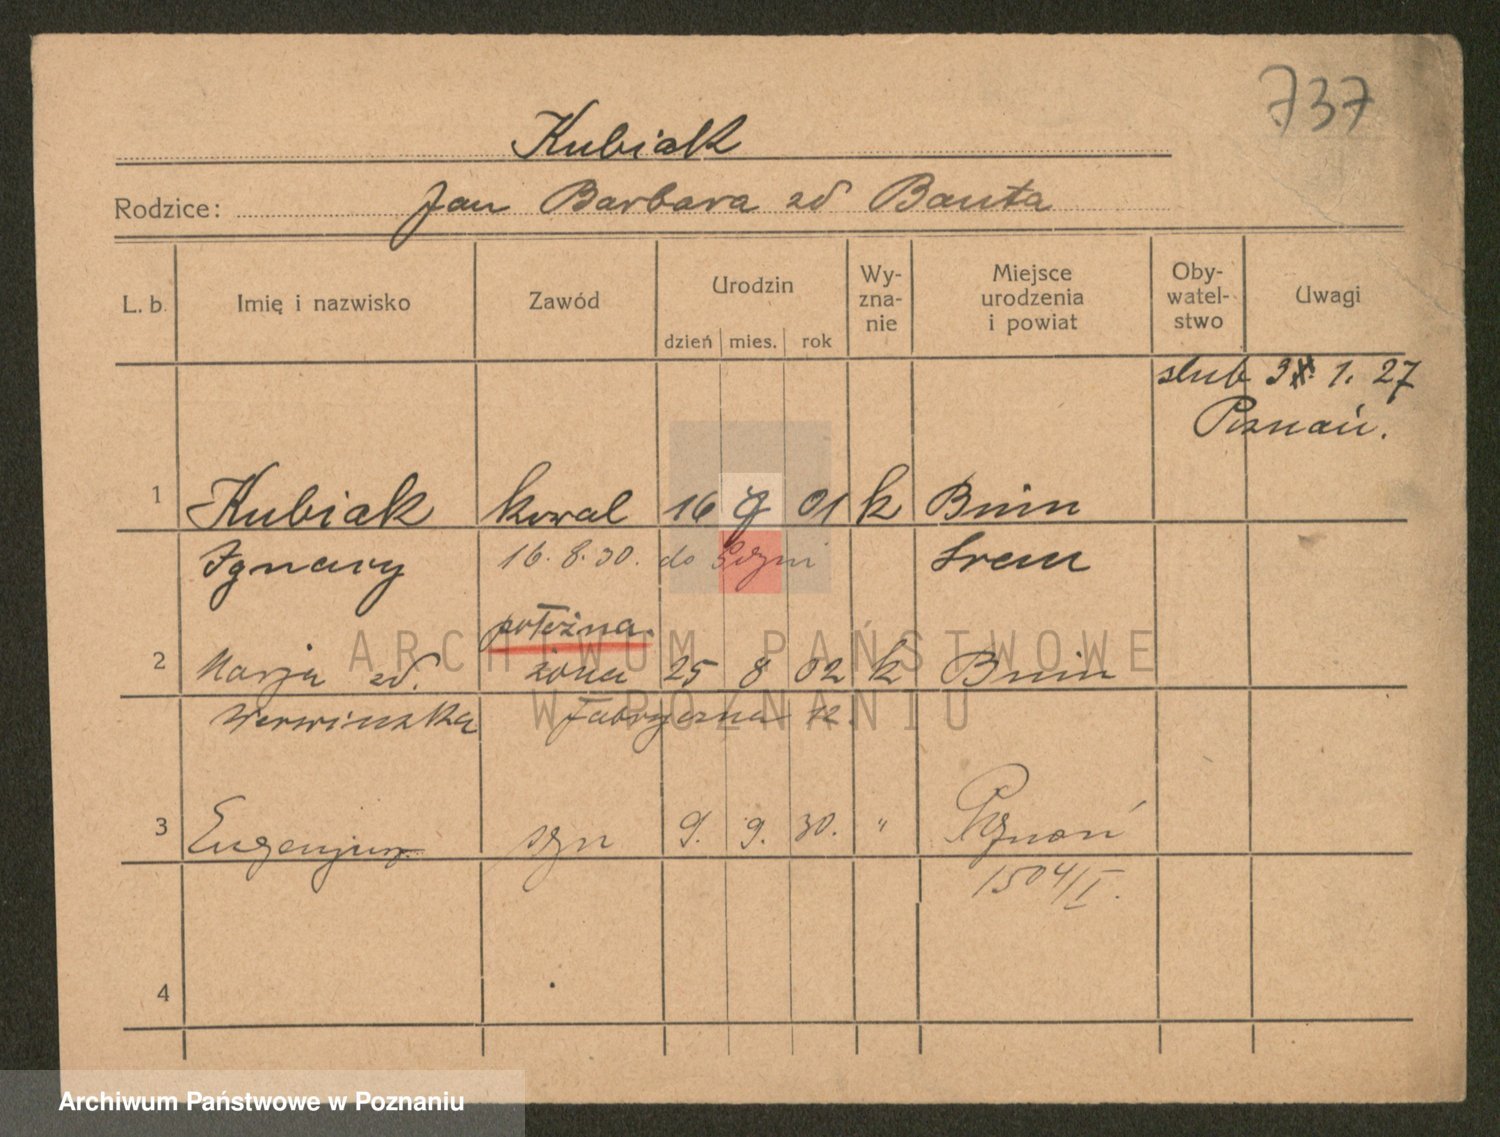 737
Kubiak
Rodzice: Jan Barbara zd Banta
L. b. Imię i nazwisko Zawód Urodzin dzień mies. rok Wy-zna-nie Miejsce urodzenia i powiat Oby-watel-stwo Uwagi
slub 3 1. 27
Poznań.
1 Kubiak kowal 16 01 k Bnin
Ignacy 16. 8. 30. do Gdyni Srem
położna.
2 Marja zd. żona 25 8 02 k Bnin
Werwińska Fabryczna 12.
3 Eugenjusz syn 9. 9. 30. " Poznań
1504/I.
4
ARCHIWUM PAŃSTWOWE
W POZNANIU
Archiwum Państwowe w Poznaniu